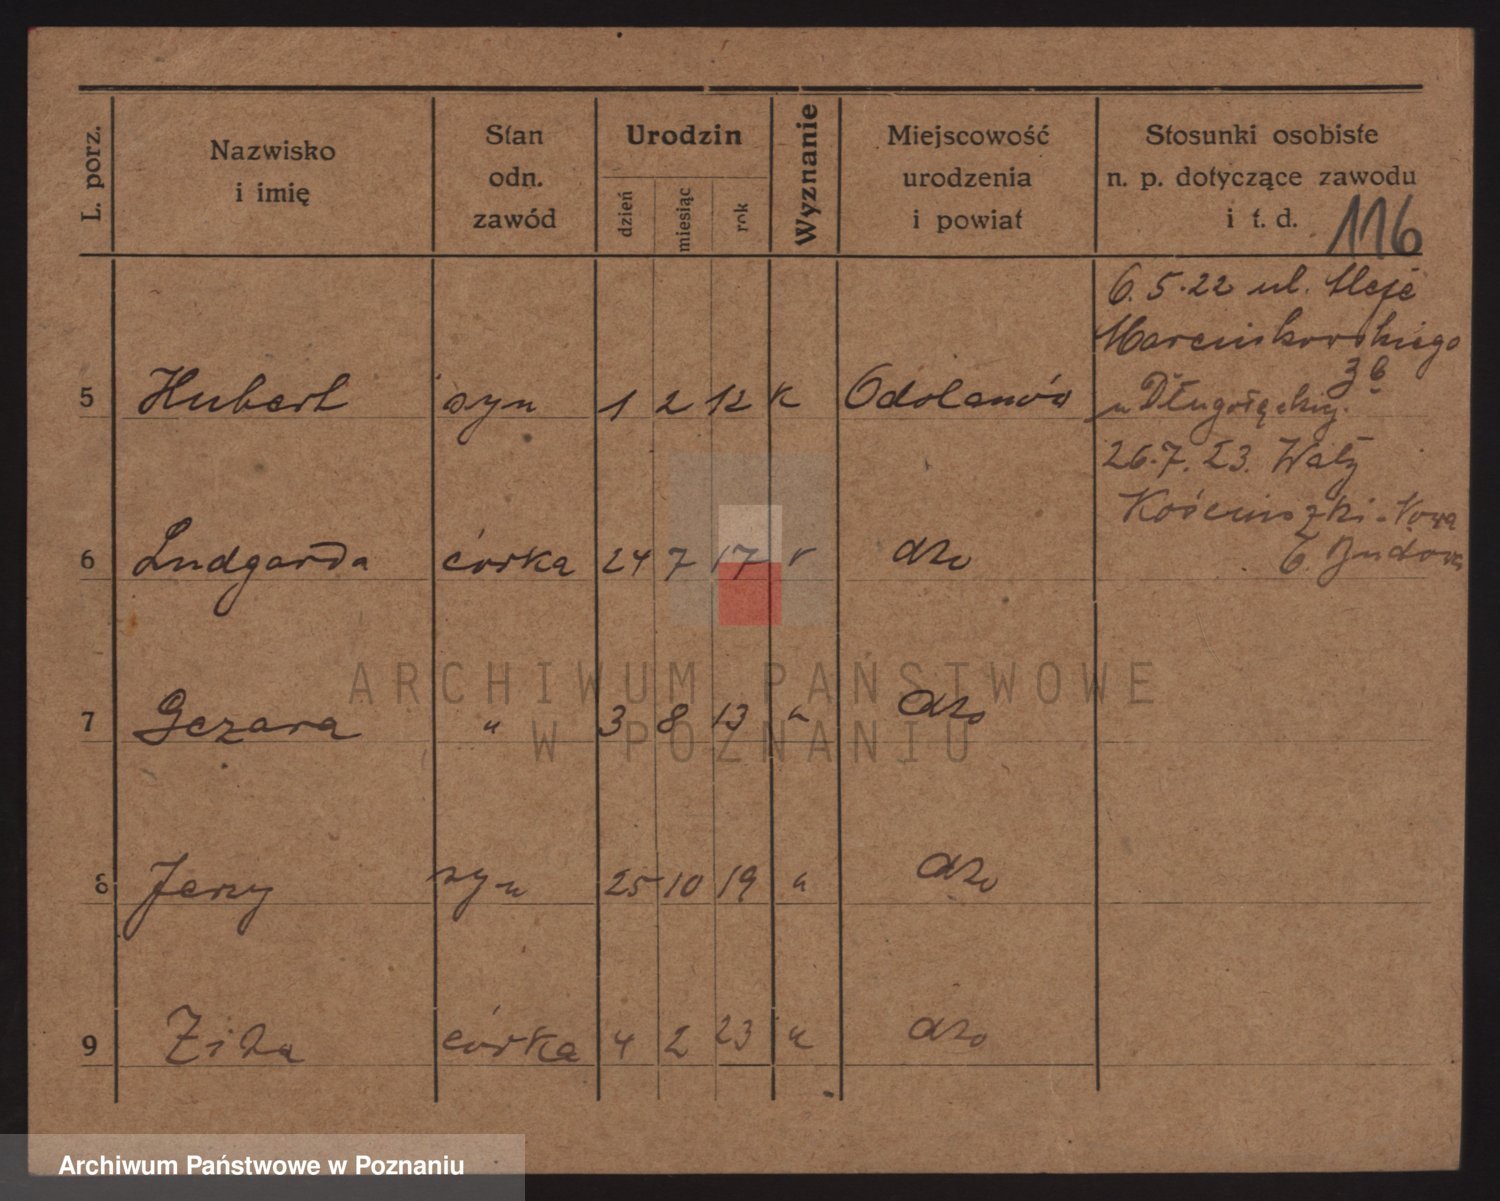 L. porz.
Nazwisko
i imię
Stan
odn.
zawód
Urodzin
dzień
miesiąc
rok
Wyznanie
Miejscowość
urodzenia
i powiat
Stosunki osobiste
n. p. dotyczące zawodu
i t. d.
116
6. 5. 22 ul. Aleje
Marcinkowskiego
3b
5 Hubert syn 1 2 12 k Odolanów
u Długołęckiej.
26. 7. 23. Wały
Kościuszki - Nowa
6 Ludgarda córka 24 7 17 " dto
Budowa
7 Cezara " 3 8 13 " dto
8 Jerzy syn 25 10 19 " dto
9 Zita córka 4 2 23 " dto
ARCHIWUM PAŃSTWOWE
W POZNANIU
Archiwum Państwowe w Poznaniu